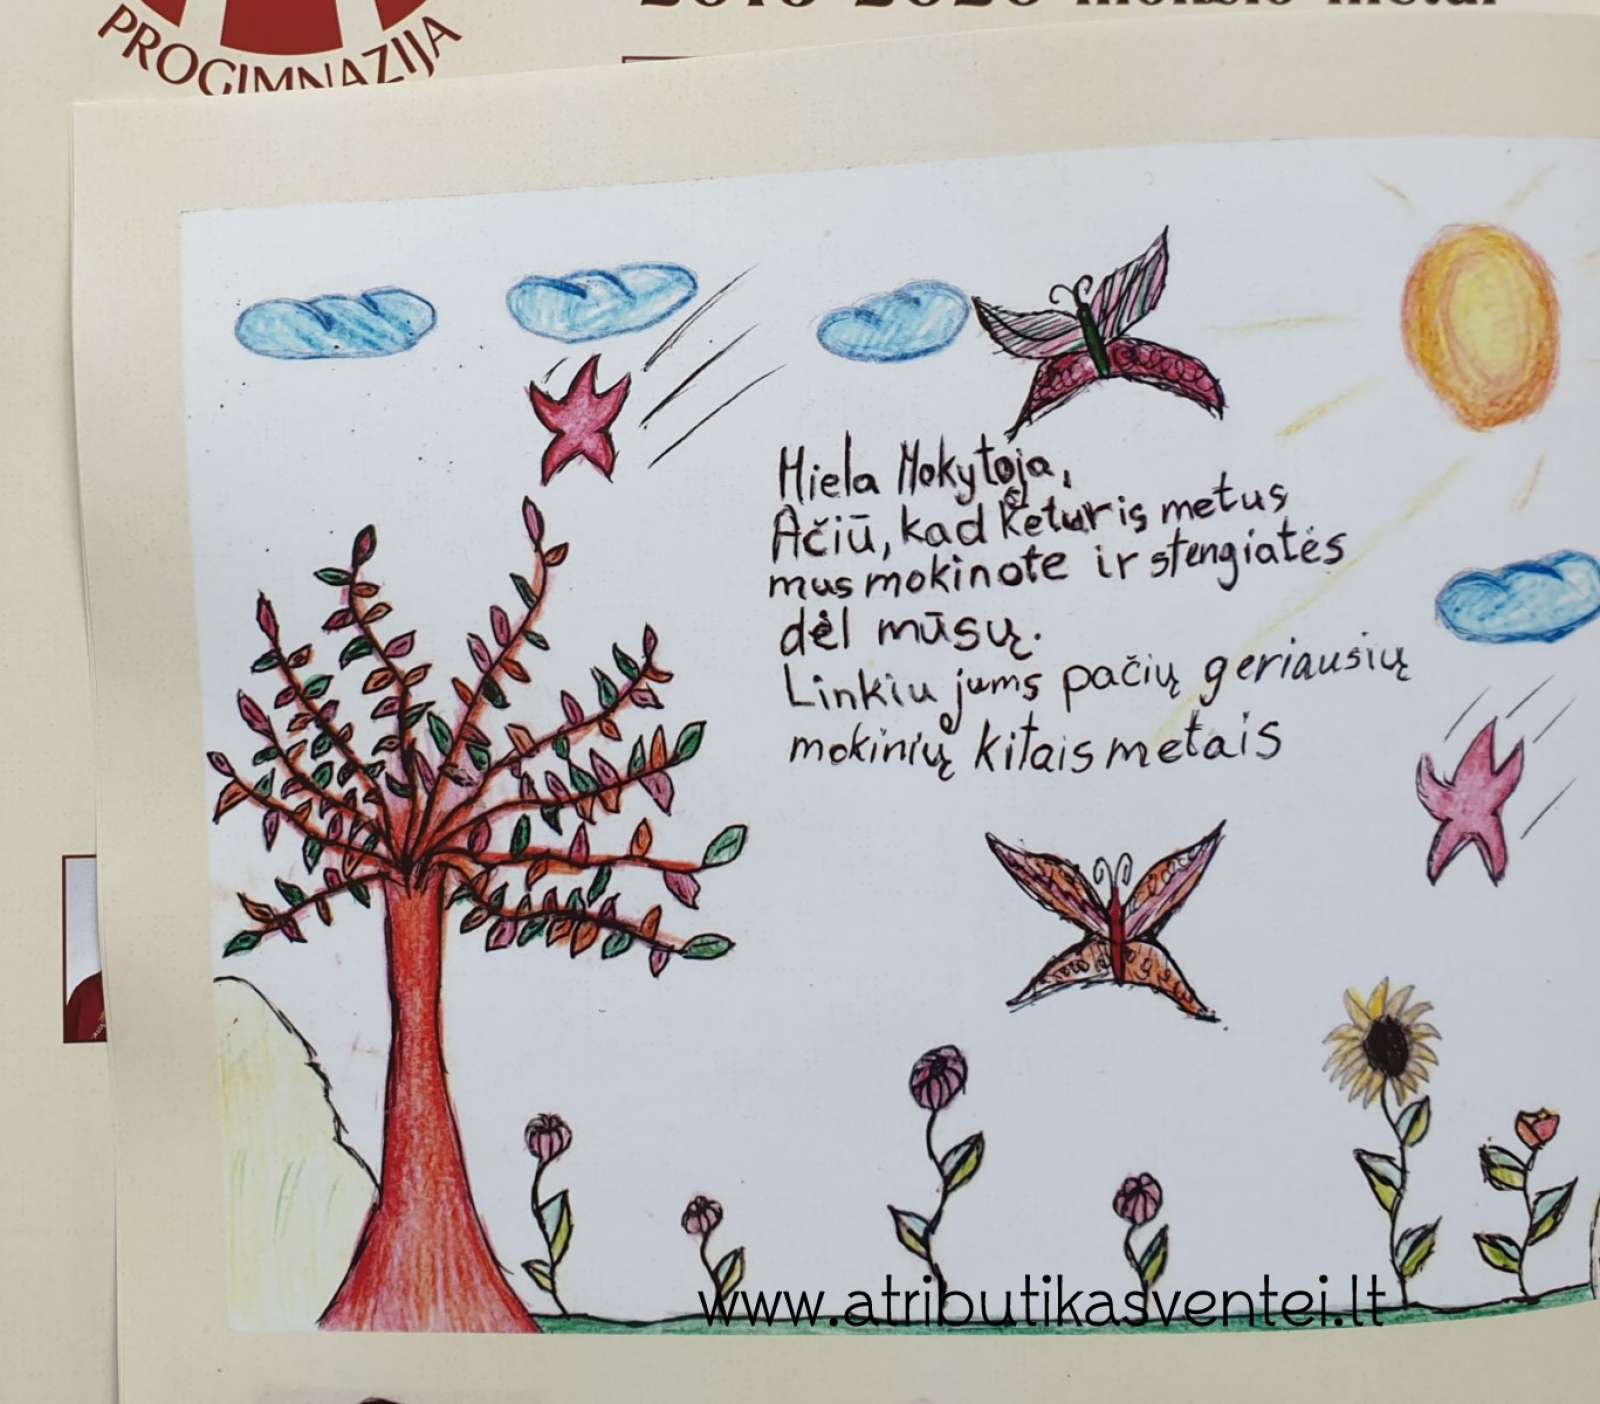 PROGIMNAZIJA
Miela Mokytoja,
Ačiū, kad keturis metus
mus mokinote ir stengiatės
dėl mūsų.
Linkiu jums pačių geriausių
mokinių kitais metais
www.atributikasventei.lt